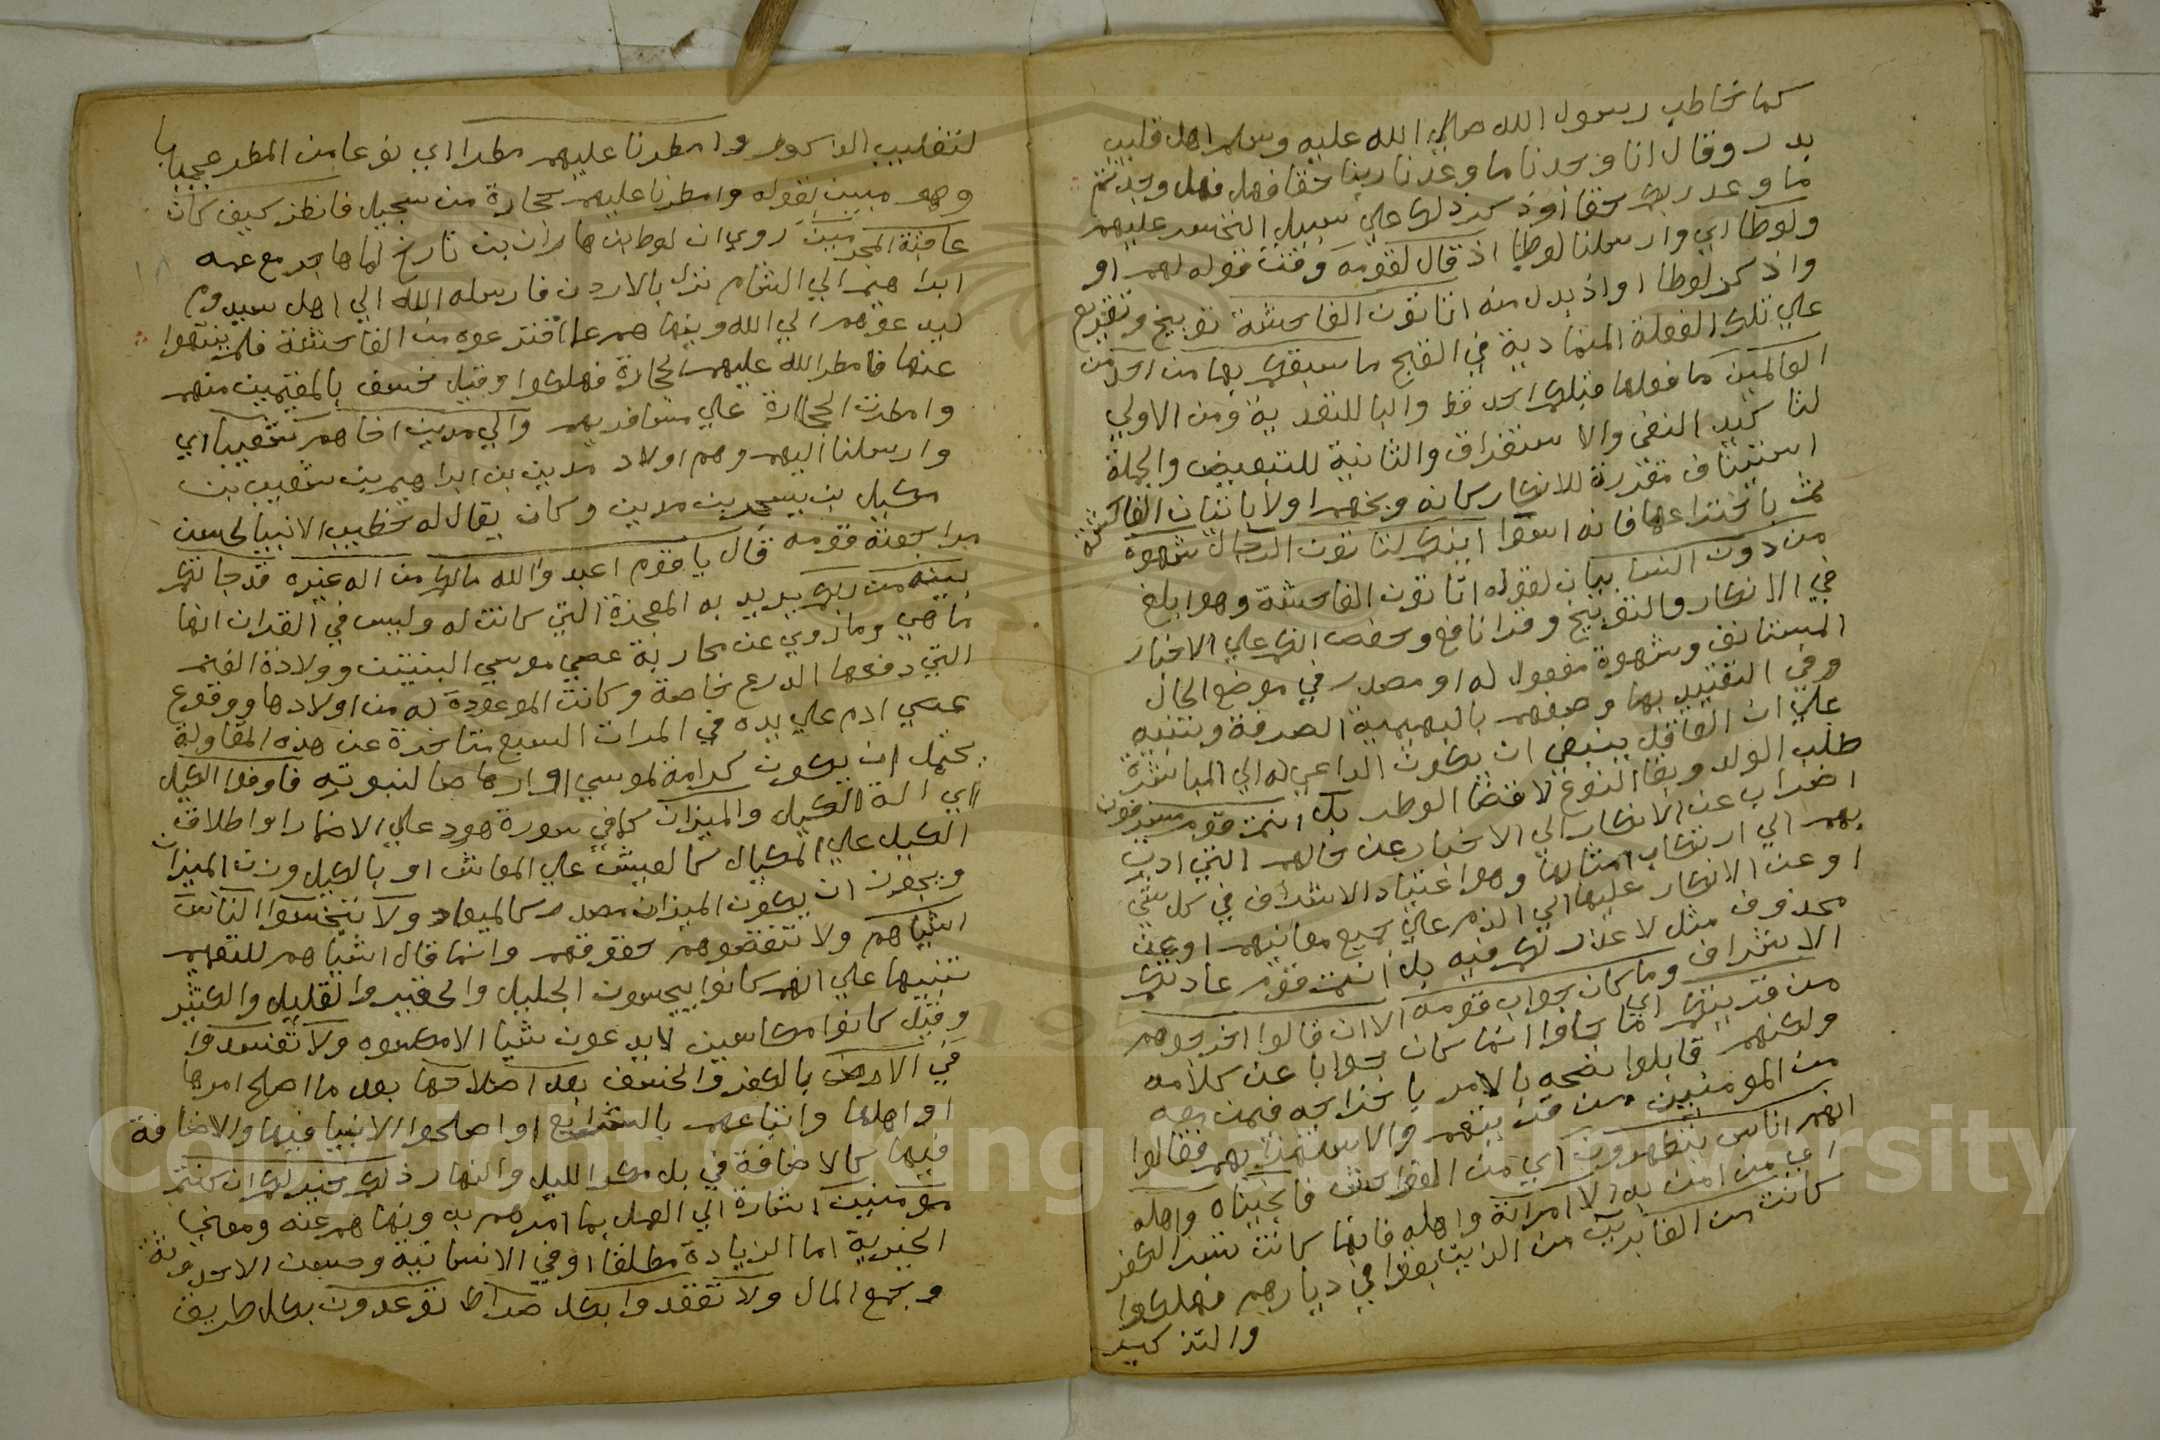 كما خاطب رسول الله صلي الله عليه وسلم اهل قليب
بدر وقال انا وجدنا ما وعدنا ربنا حقا فهل فهل وجدتم
ما وعد ربكم حقا او ذكر ذلك علي سبيل التحسر عليهم
ولوطا اي وارسلنا لوطا اذ قال لقومه وقت قوله لهم او
واذكر لوطا او اذ بدل منه اتاتون الفاحشة توبيخ وتقريع
علي تلك الفعلة المتمادية في القبح ما سبقكم بها من احد من
العالمين ما فعلها قبلكم احد قط والبا للتعدية ومن الاولي
لتاكيد النفي والاستغراق والثانية للتبعيض والجملة
استيناف مقررة للانكار كانه وبخهم اولا باتيان الفاحشة
ثم باختراعها فانه اسوا اينكم لتاتون الرجال شهوة
من دون النسا بيان لقوله اتاتون الفاحشة وهو ابلغ
في الانكار والتوبيخ وقرا نافع وحفص انكم علي الاخبار
المستانف وشهوة مفعول له او مصدر في موضع الحال
وفي التقييد بها وصفهم بالبهيمية الصرفة وتنبيه
علي ان العاقل ينبغي ان يكون الداعي له الي المباشرة
طلب الولد وبقا النوع لا قضا الوطر بل انتم قوم مسرفون
اضراب عن الانكار الي الاخبار عن حالهم التي ادت
بهم الي ارتكاب امثالها وهو اعتياد الاسراف في كل شي
او عن الانكار عليها الي الذم علي جميع معايبهم او عن
محذوف مثل لا عذر لكم فيه بل انتم قوم عادتكم
الاسراف وما كان جواب قومه الا ان قالوا اخرجوهم
من قريتكم اي ما جاوا انما كان جوابا عن كلامه
ولكنهم قابلوا نصحه بالامر باخراجه فمن معه
من المومنين من قريتهم والاستهزا بهم فقالوا
انهم اناس يتطهرون اي من الفواحش فانجيناه واهله
اي من امن به الا امراته واهله فانها كانت تسر الكفر
كانت من الغابرين من الذين بقوا في ديارهم فهلكوا
والتذكير
لتغليب الذكور وامطرنا عليهم مطرا اي نوعا من المطر عجيبا
وهو مبين بقوله وامطرنا عليهم حجارة من سجيل فانظر كيف كان
عاقبة المجرمين روي ان لوط بن هاران بن تارخ لما هاجر مع عمه
ابراهيم الي الشام نزل بالاردن فارسله الله الي اهل سدوم
ليدعوهم الي الله وينهاهم عما اخترعوه من الفاحشة فلم ينتهوا
عنها فامطر الله عليهم الحجارة فهلكوا وقيل خسف بالمقيمين منهم
وامطرت الحجارة علي مسافريهم والي مدين اخاهم شعيبا اي
وارسلنا اليهم وهم اولاد مدين بن ابراهيم بن شعيب بن
مكيل بن يسجر بن مدين وكان يقال له خطيب الانبيا لحسن
مراجعته قومه قال يا قوم اعبدوا الله مالكم من اله غيره قد جاتكم
بينة من ربكم يريد به المعجزة التي كانت له وليس في القران انها
ما هي وما روي عن محاربة عصي موسي التنين وولادة الغنم
التي دفعها الدرع خاصة وكانت الموعودة له من اولادها ووقوع
عصي ادم علي يده في المرات السبع متاخرة عن هذه المقاولة
يحتمل ان يكون كرامة لموسي او ارهاصا لنبوته فاوفوا الكيل
اي الة الكيل والميزان كما في سورة هود علي الاضمار او اطلاق
الكيل علي المكيال كالعيش علي المعاش او بالكيل وزن الميزان
ويجوز ان يكون الميزان مصدر كالميعاد ولا تبخسوا الناس
اشياهم ولا تنقصوهم حقوقهم وانما قال اشياهم للتعميم
تنبيها علي انهم كانوا يبخسون الجليل والحقير والقليل والكثير
وقيل كانوا مكاسين لا يدعون شيا الا مكسوه ولا تفسدوا
في الارض بالكفر والخسف بعد اصلاحها بعد ما اصلح امرها
او اهلها واتباعهم بالشرايع او اصلحوا الانبيا فيها والاضافة
فيها كالاضافة في بل مكر الليل والنهار ذلكم خير لكم ان كنتم
مومنين اشارة الي العمل بما امرهم به ونهاهم عنه ومعني
الخيرية اما الزيادة مطلقا او في الانسانية وحسن الاحدوثة
وجمع المال ولا تقعدوا بكل صراط توعدون بكل طريق
Copyright © King Saud University